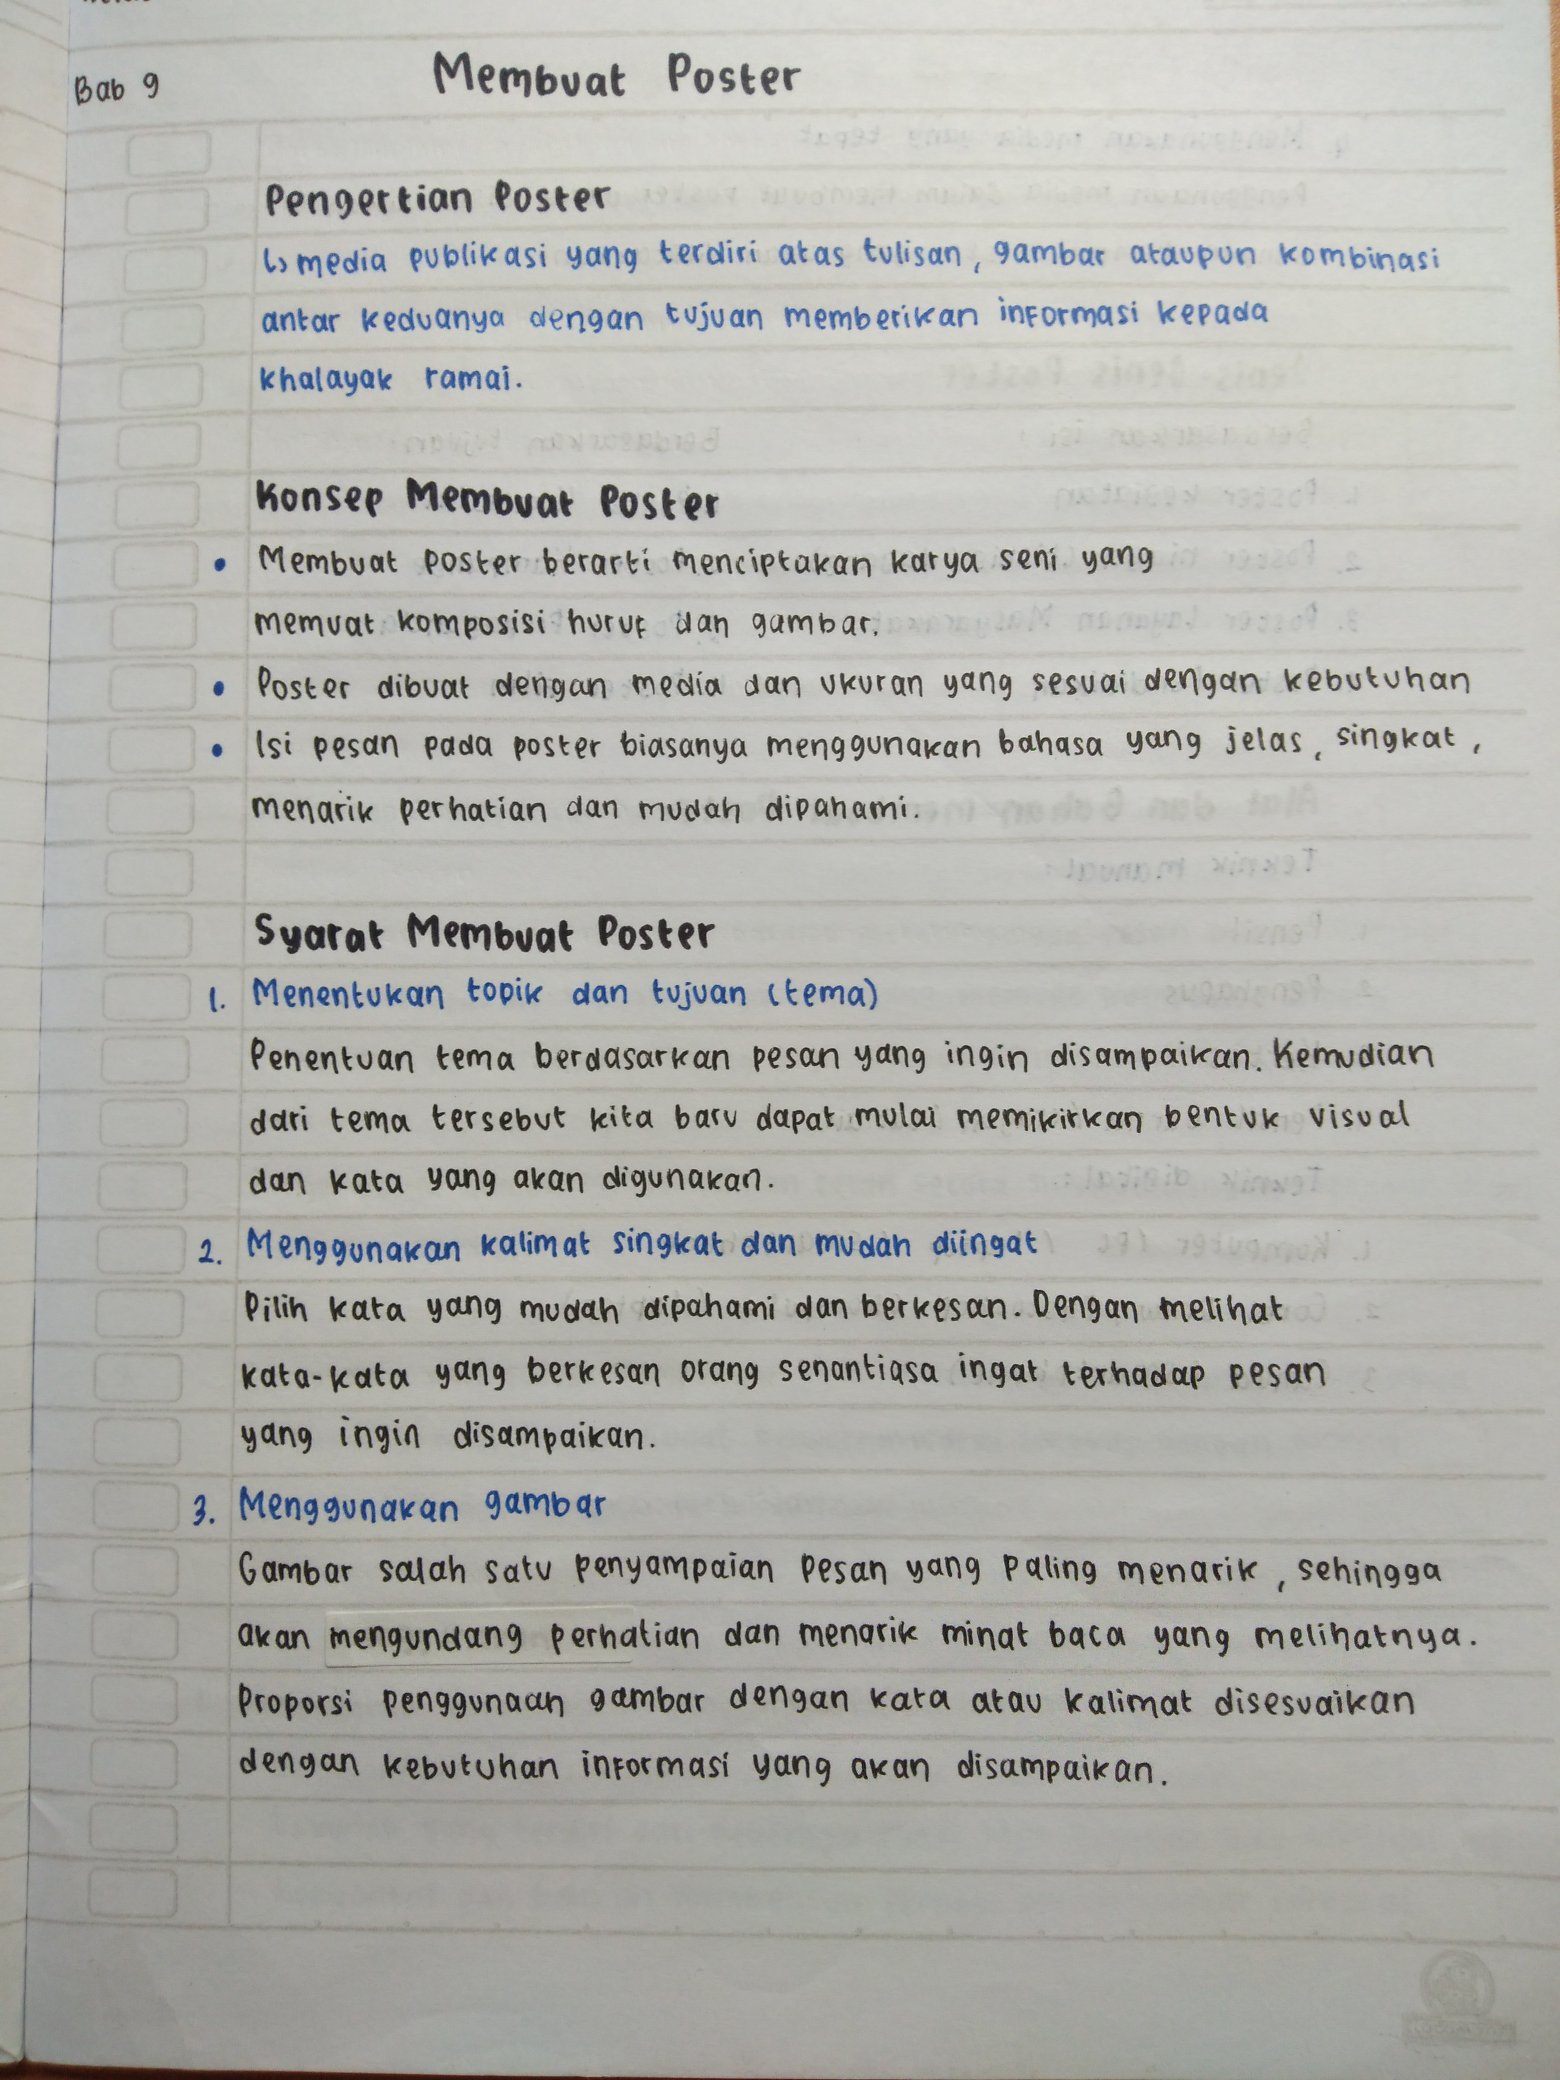 Bab 9
Membuat Poster
Pengertian Poster
↳ media publikasi yang terdiri atas tulisan, gambar ataupun kombinasi
antar keduanya dengan tujuan memberikan informasi kepada
khalayak ramai.
Konsep Membuat Poster
• Membuat poster berarti menciptakan karya seni yang
memuat komposisi huruf dan gambar.
• Poster dibuat dengan media dan ukuran yang sesuai dengan kebutuhan
• Isi pesan pada poster biasanya menggunakan bahasa yang jelas, singkat,
menarik perhatian dan mudah dipahami.
Syarat Membuat Poster
1. Menentukan topik dan tujuan (tema)
Penentuan tema berdasarkan pesan yang ingin disampaikan. Kemudian
dari tema tersebut kita baru dapat mulai memikirkan bentuk visual
dan kata yang akan digunakan.
2. Menggunakan kalimat singkat dan mudah diingat
Pilih kata yang mudah dipahami dan berkesan. Dengan melihat
kata-kata yang berkesan orang senantiasa ingat terhadap pesan
yang ingin disampaikan.
3. Menggunakan gambar
Gambar salah satu penyampaian pesan yang paling menarik, sehingga
akan mengundang perhatian dan menarik minat baca yang melihatnya.
Proporsi penggunaan gambar dengan kata atau kalimat disesuaikan
dengan kebutuhan informasi yang akan disampaikan.